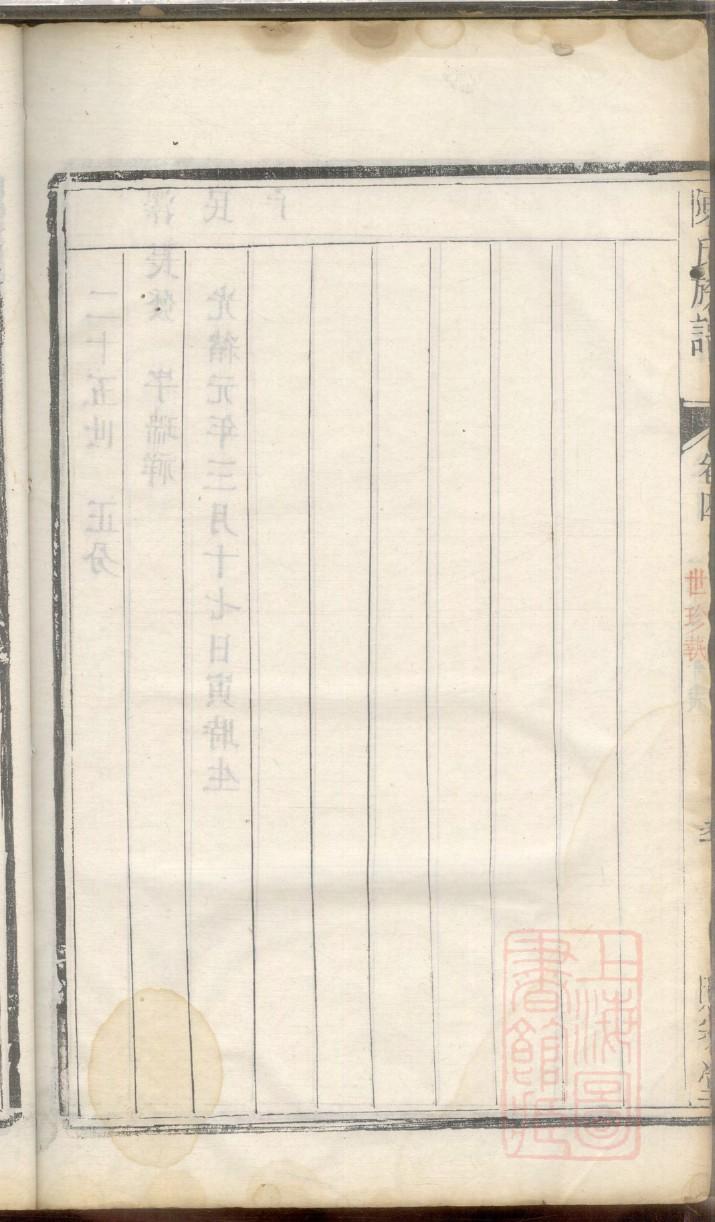 陳氏族譜
卷四
世珍執
上海圖
書館藏
二十五世 正分
長發 字瑞祥
民 光緒元年三月十七日寅時生